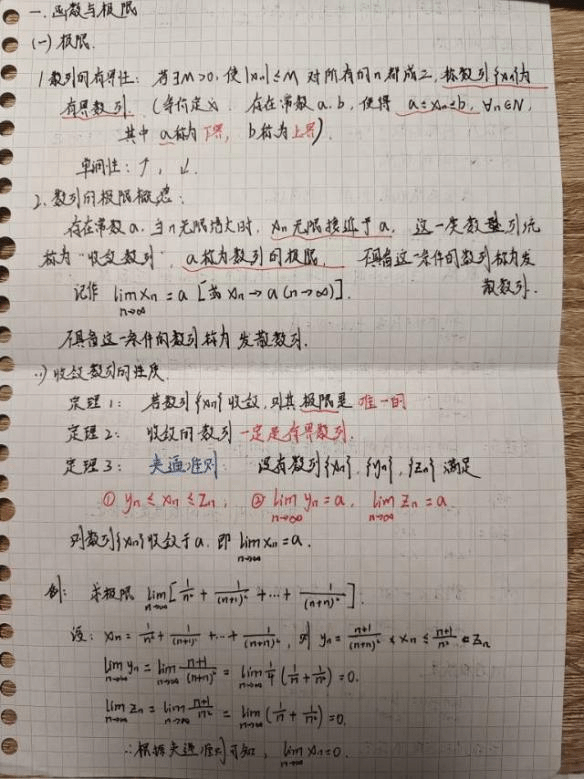 一. 函数与极限
(一) 极限.
1 数列的有界性: 若∃M>0, 使|xn|≤M 对所有的n都成立, 称数列{xn}为
有界数列. (等价定义 存在常数a.b, 使得 a≤xn≤b, ∀n∈N,
其中 a称为下界, b称为上界).
单调性: ↑, ↓.
2. 数列的极限概念:
存在常数a, 当n无限增大时, xn无限接近于a, 这一类数列统
称为"收敛数列", a称为数列的极限, 不具备这一条件的数列称为发
散数列.
记作 lim n→∞ xn = a [或 xn→a (n→∞)].
不具备这一条件的数列称为 发散数列.
收敛数列的性质.
定理1: 若数列{xn}收敛, 则其极限是唯一的
定理2: 收敛的数列一定是有界数列.
定理3: 夹逼准则: 设有数列{xn}, {yn}, {zn} 满足
① yn ≤ xn ≤ zn, ② lim n→∞ yn = a, lim n→∞ zn = a
则数列{xn}收敛于a, 即 lim n→∞ xn = a.
例: 求极限 lim n→∞ [1/n² + 1/(n+1)² + ··· + 1/(n+n)²].
设: xn = 1/n² + 1/(n+1)² + ··· + 1/(n+n)², 则 yn = n+1/(n+n)² ≤ xn ≤ n+1/n² = zn
lim n→∞ yn = lim n→∞ n+1/(n+n)² = lim n→∞ 1/4 (1/n + 1/n²) = 0.
lim n→∞ zn = lim n→∞ n+1/n² = lim n→∞ (1/n + 1/n²) = 0.
∴根据夹逼准则可知, lim n→∞ xn = 0.